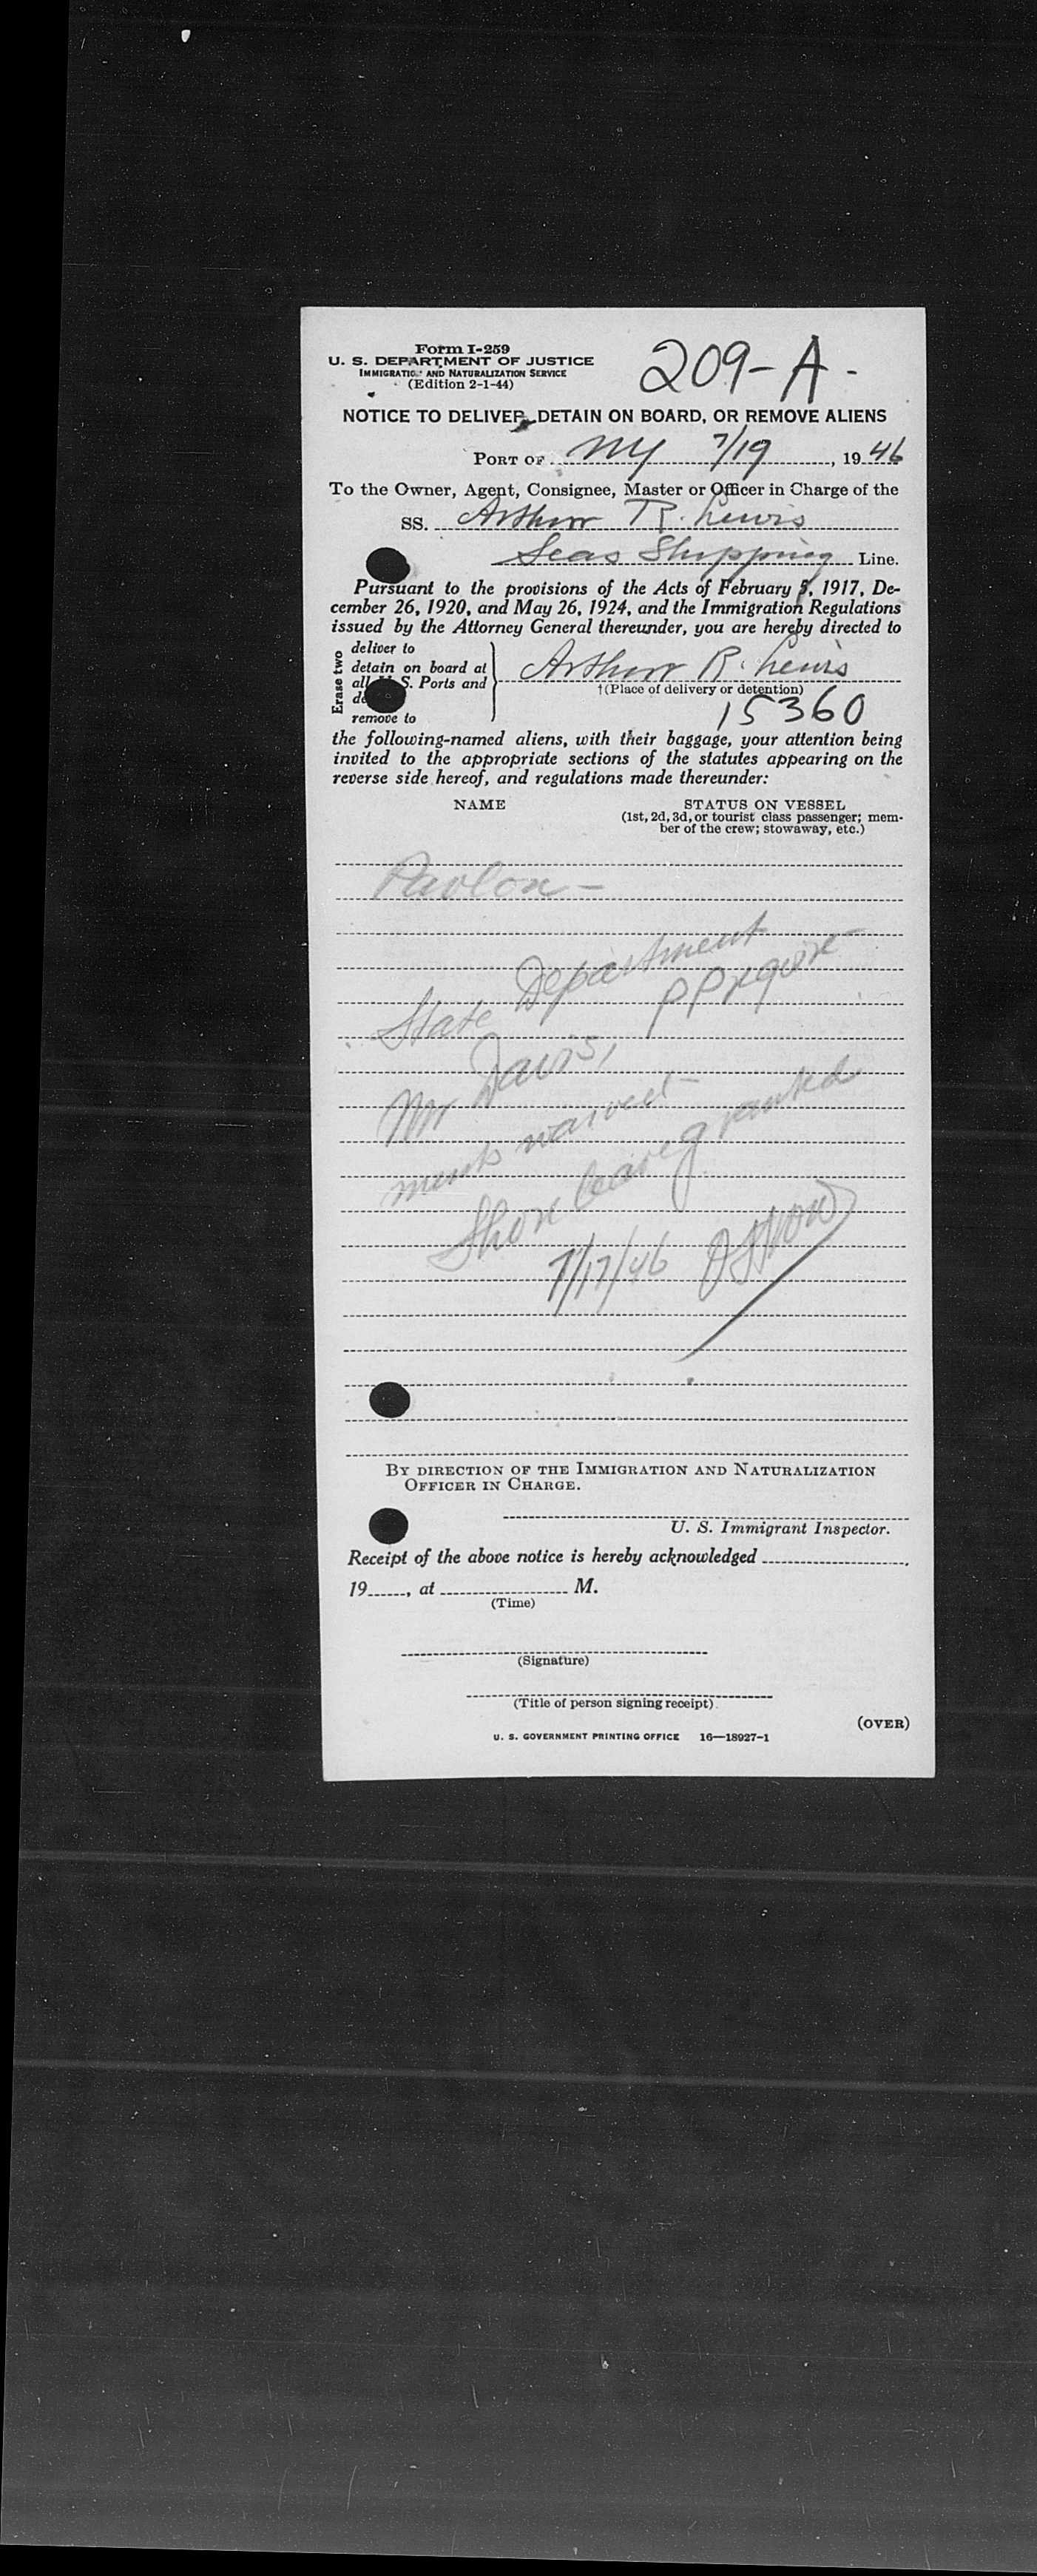 Form I-259
U. S. DEPARTMENT OF JUSTICE
IMMIGRATION AND NATURALIZATION SERVICE
(Edition 2-1-44)
209-A-
NOTICE TO DELIVER, DETAIN ON BOARD, OR REMOVE ALIENS
PORT OF NY 7/19, 1946
To the Owner, Agent, Consignee, Master or Officer in Charge of the
SS. Arthur R. Lewis
Seas Shipping Line.
Pursuant to the provisions of the Acts of February 5, 1917, De-
cember 26, 1920, and May 26, 1924, and the Immigration Regulations
issued by the Attorney General thereunder, you are hereby directed to
Erase two
deliver to
detain on board at
all U. S. Ports and
remove to
Arthur R. Lewis
†(Place of delivery or detention)
15360
the following-named aliens, with their baggage, your attention being
invited to the appropriate sections of the statutes appearing on the
reverse side hereof, and regulations made thereunder:
NAME
STATUS ON VESSEL
(1st, 2d, 3d, or tourist class passenger; mem-
ber of the crew; stowaway, etc.)
State Department
Mr Davis, PP require-
ments waived
Shore leave granted
7/17/46
BY DIRECTION OF THE IMMIGRATION AND NATURALIZATION
OFFICER IN CHARGE.
U. S. Immigrant Inspector.
Receipt of the above notice is hereby acknowledged
19, at M.
(Time)
(Signature)
(Title of person signing receipt)
(OVER)
U. S. GOVERNMENT PRINTING OFFICE 16—18927-1